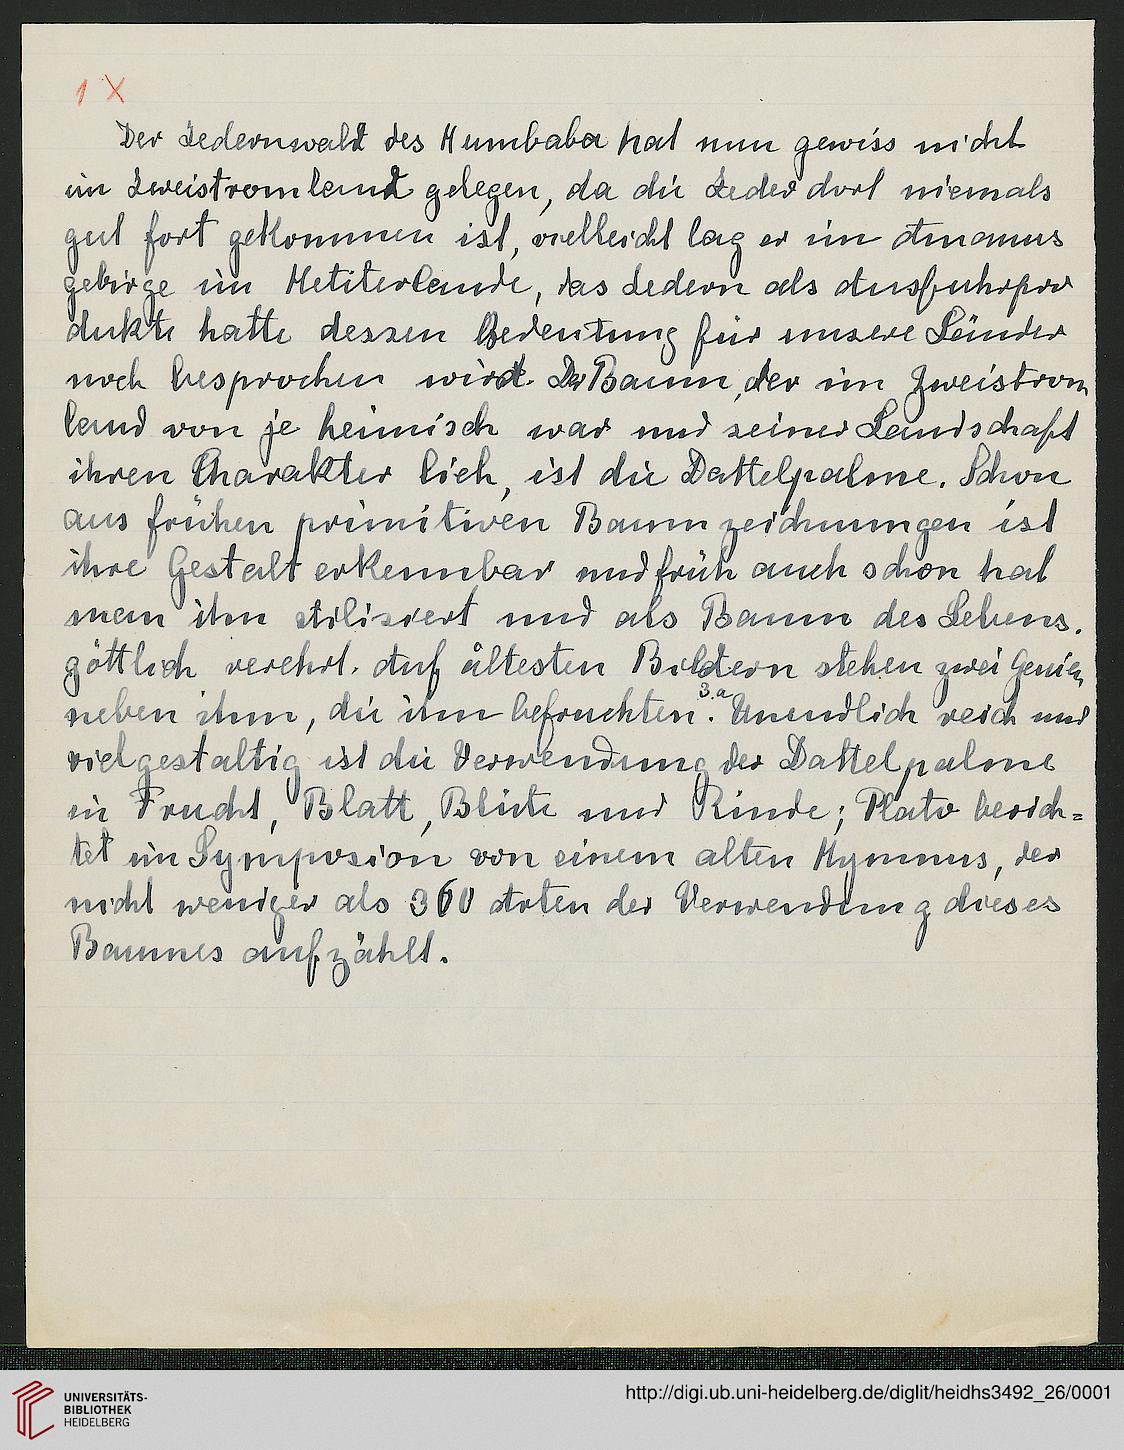 1 X
Der Zedernwald des Humbaba hat nun gewiss nicht
im Zweistromland gelegen, da die Zeder dort niemals
gut fort gekommen ist, vielleicht lag er im Amanus
gebirge im Hetiterlande, das Zedern als Ausfuhrpro
dukte hatte dessen Bedeutung für unsere Länder
noch besprochen wird. Der Baum, der im Zweistrom
land von je heimisch war und seiner Landschaft
ihren Charakter lieh, ist die Dattelpalme. Schon
aus frühen primitiven Baumzeichnungen ist
ihre Gestalt erkennbar und früh auch schon hat
man ihn stilisiert und als Baum des Lebens.
göttlich verehrt. Auf ältesten Bildern stehen zwei Genien
neben ihm, die ihn befruchten. 3.a Unendlich reich und
vielgestaltig ist die Verwendung der Dattelpalme
in Frucht, Blatt, Blüte und Rinde; Plato berich=
tet im Symposion von einem alten Hymnus, der
nicht weniger als 360 Arten der Verwendung dieses
Baumes aufzählt.
UNIVERSITÄTS-
BIBLIOTHEK
HEIDELBERG
http://digi.ub.uni-heidelberg.de/diglit/heidhs3492_26/0001